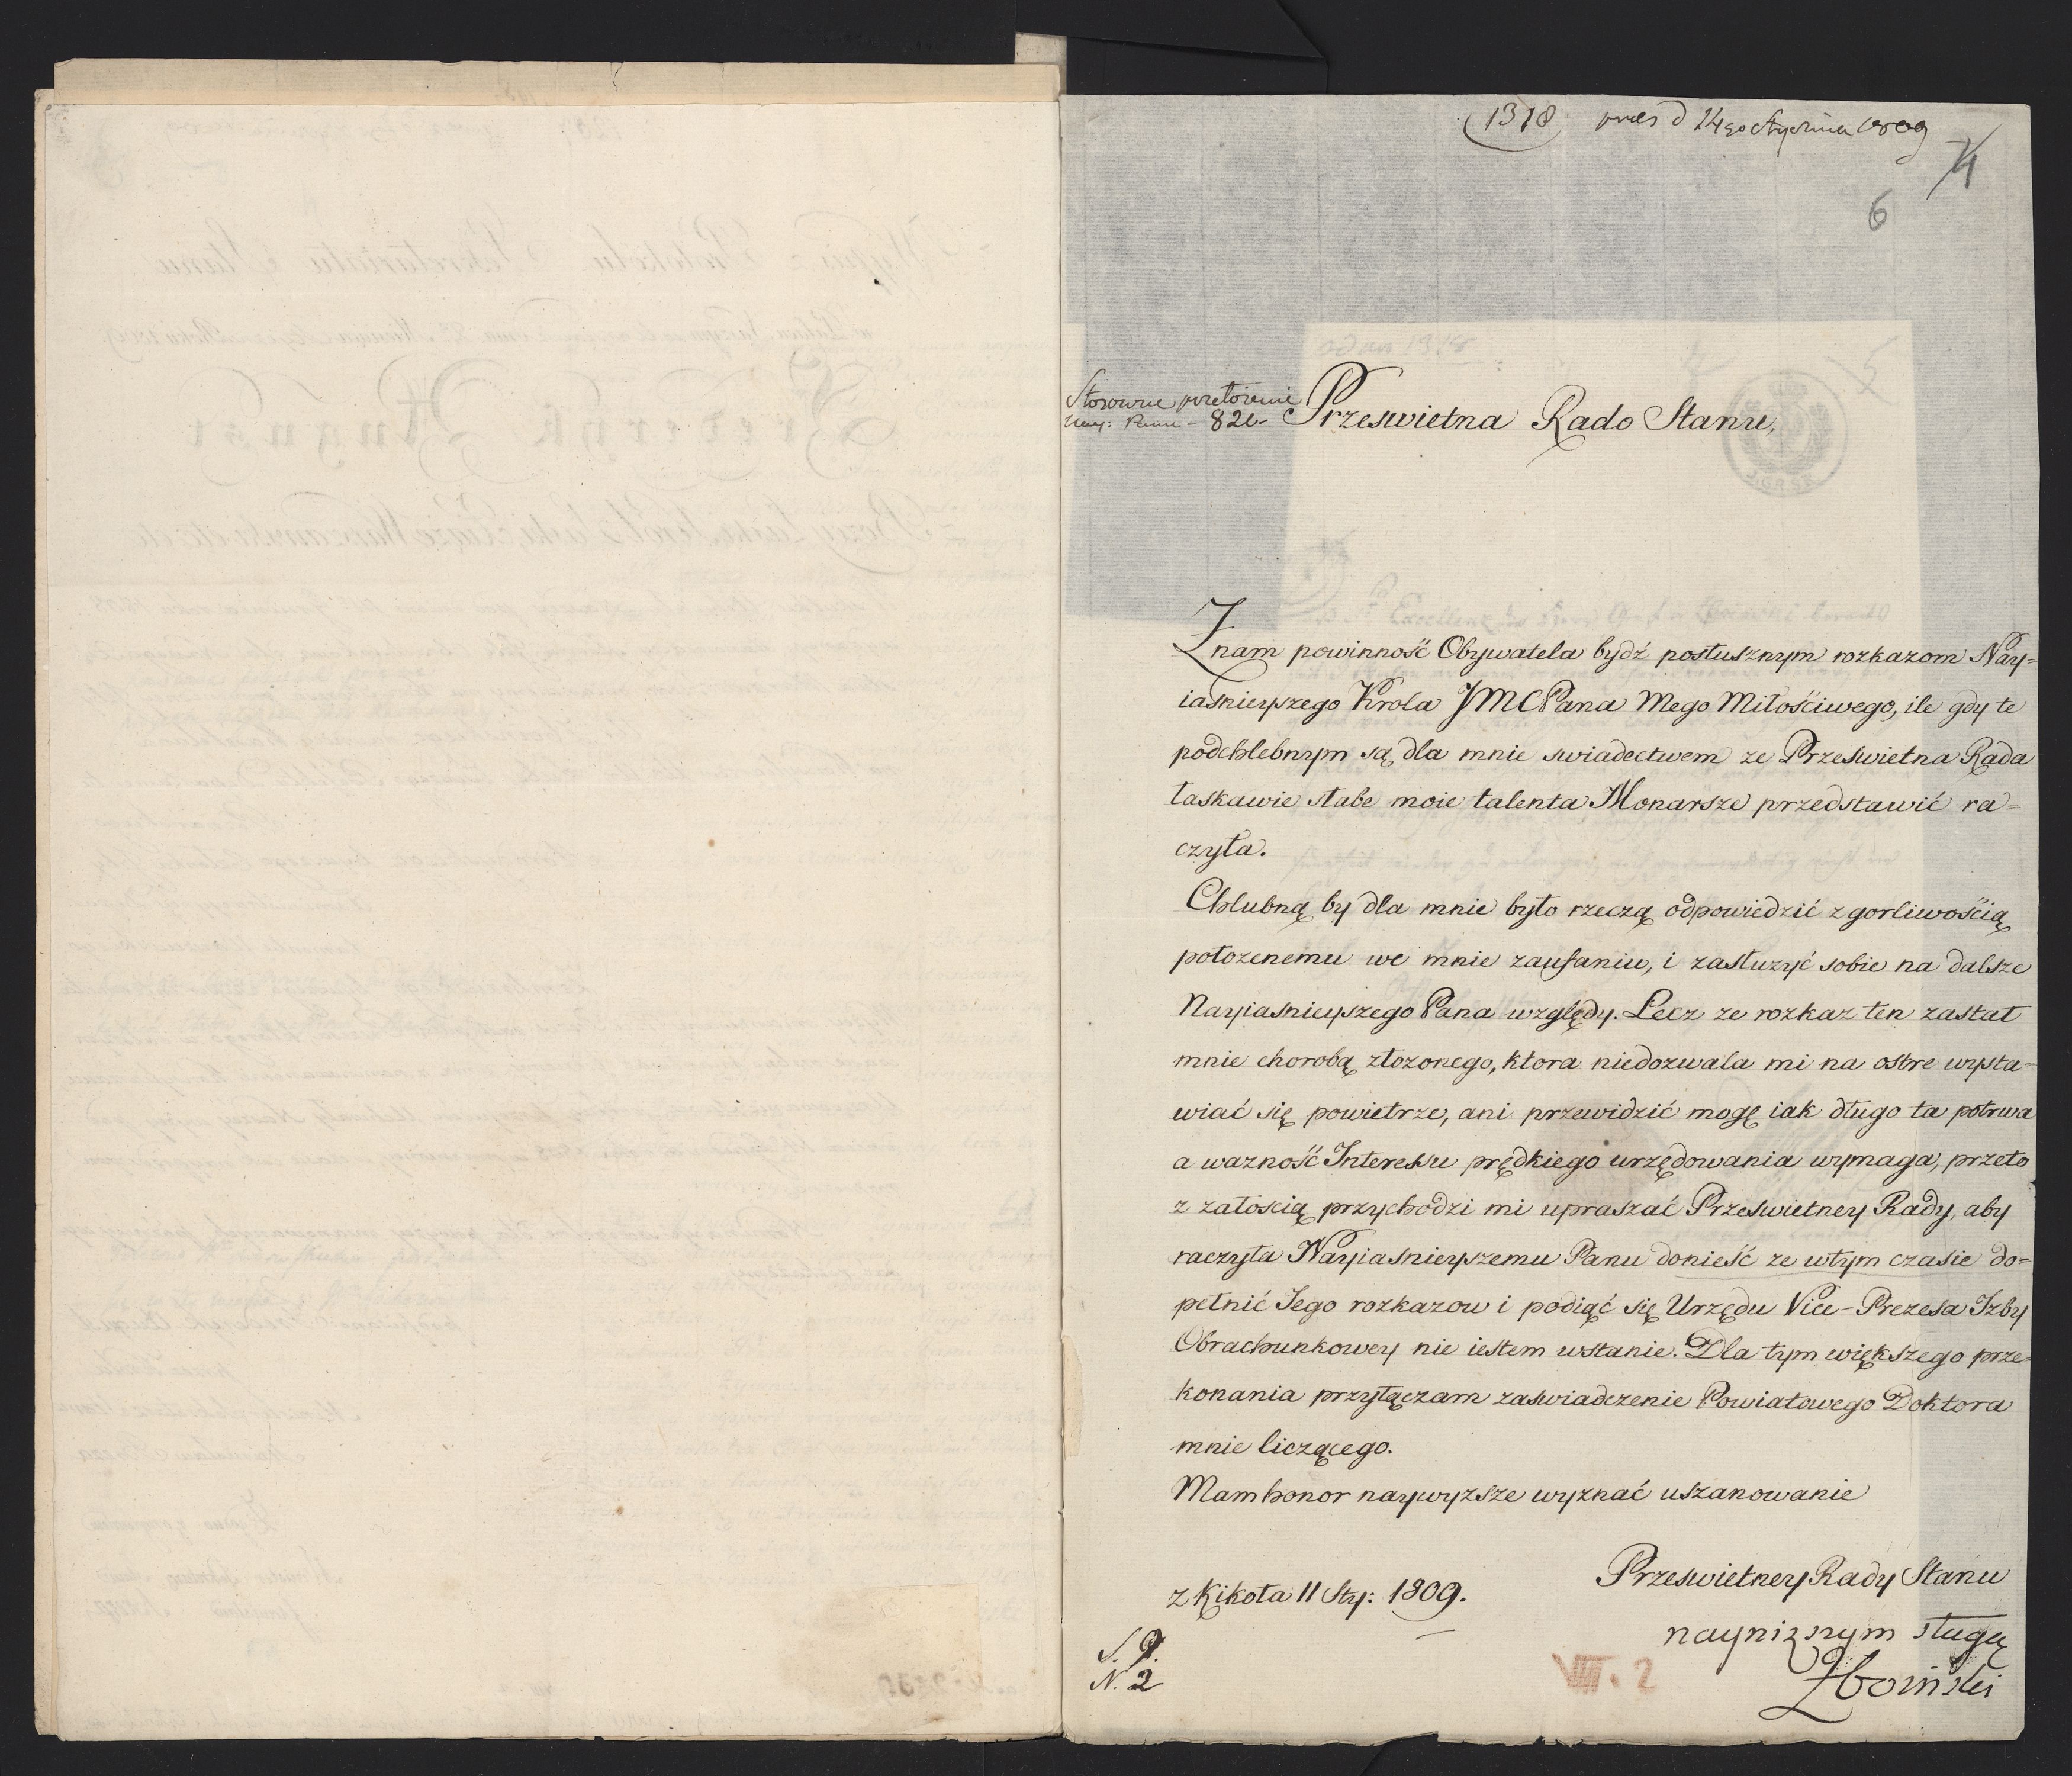 1318 præs d 24go Stycznia 1809
4
6
Stosowne przełożenie
820
Przeswietna Rado Stanu,
Znam powinność Obywatela bydź posłusznym rozkazom Nay=
iasnieyszego Krola JMCPana Mego Miłościwego, ile gdy te
podchlebnym są dla mnie swiadectwem ze Przeswietna Rada
łaskawie słabe moie talenta Monarsze przedstawić ra=
czyła.
Chlubną by dla mnie było rzeczą odpowiedzić z gorliwością
położenemu we mnie zaufaniu, i zasłużyć sobie na dalsze
Nayiasnieyszego Pana względy. Lecz ze rozkaz ten zastał
mnie chorobą złozonego, ktora niedozwala mi na ostre wysta-
wiać się powietrze, ani przewidzić mogę iak długo ta potrwa
a wazność Interessu prędkiego urzędowania wymaga, przeto
z załością przychodzi mi upraszać Przeswietney Rady, aby
raczyła Nayiasnieyszemu Panu donieść ze wtym czasie do=
pełnić Jego rozkazow i podiąć się Urzędu Vice-Prezesa Izby
Obrachunkowey nie iestem wstanie. Dla tym większego prze=
konania przyłączam zaswiadczenie Powiatowego Doktora
mnie liczącego.
Mam honor naywyzsze wyznać uszanowanie
Przeswietney Rady Stanu
z Kikoła 11 Sty: 1809.
nayniznym sługą
Zboinski
S. 9.
N. 2
VIII. 2